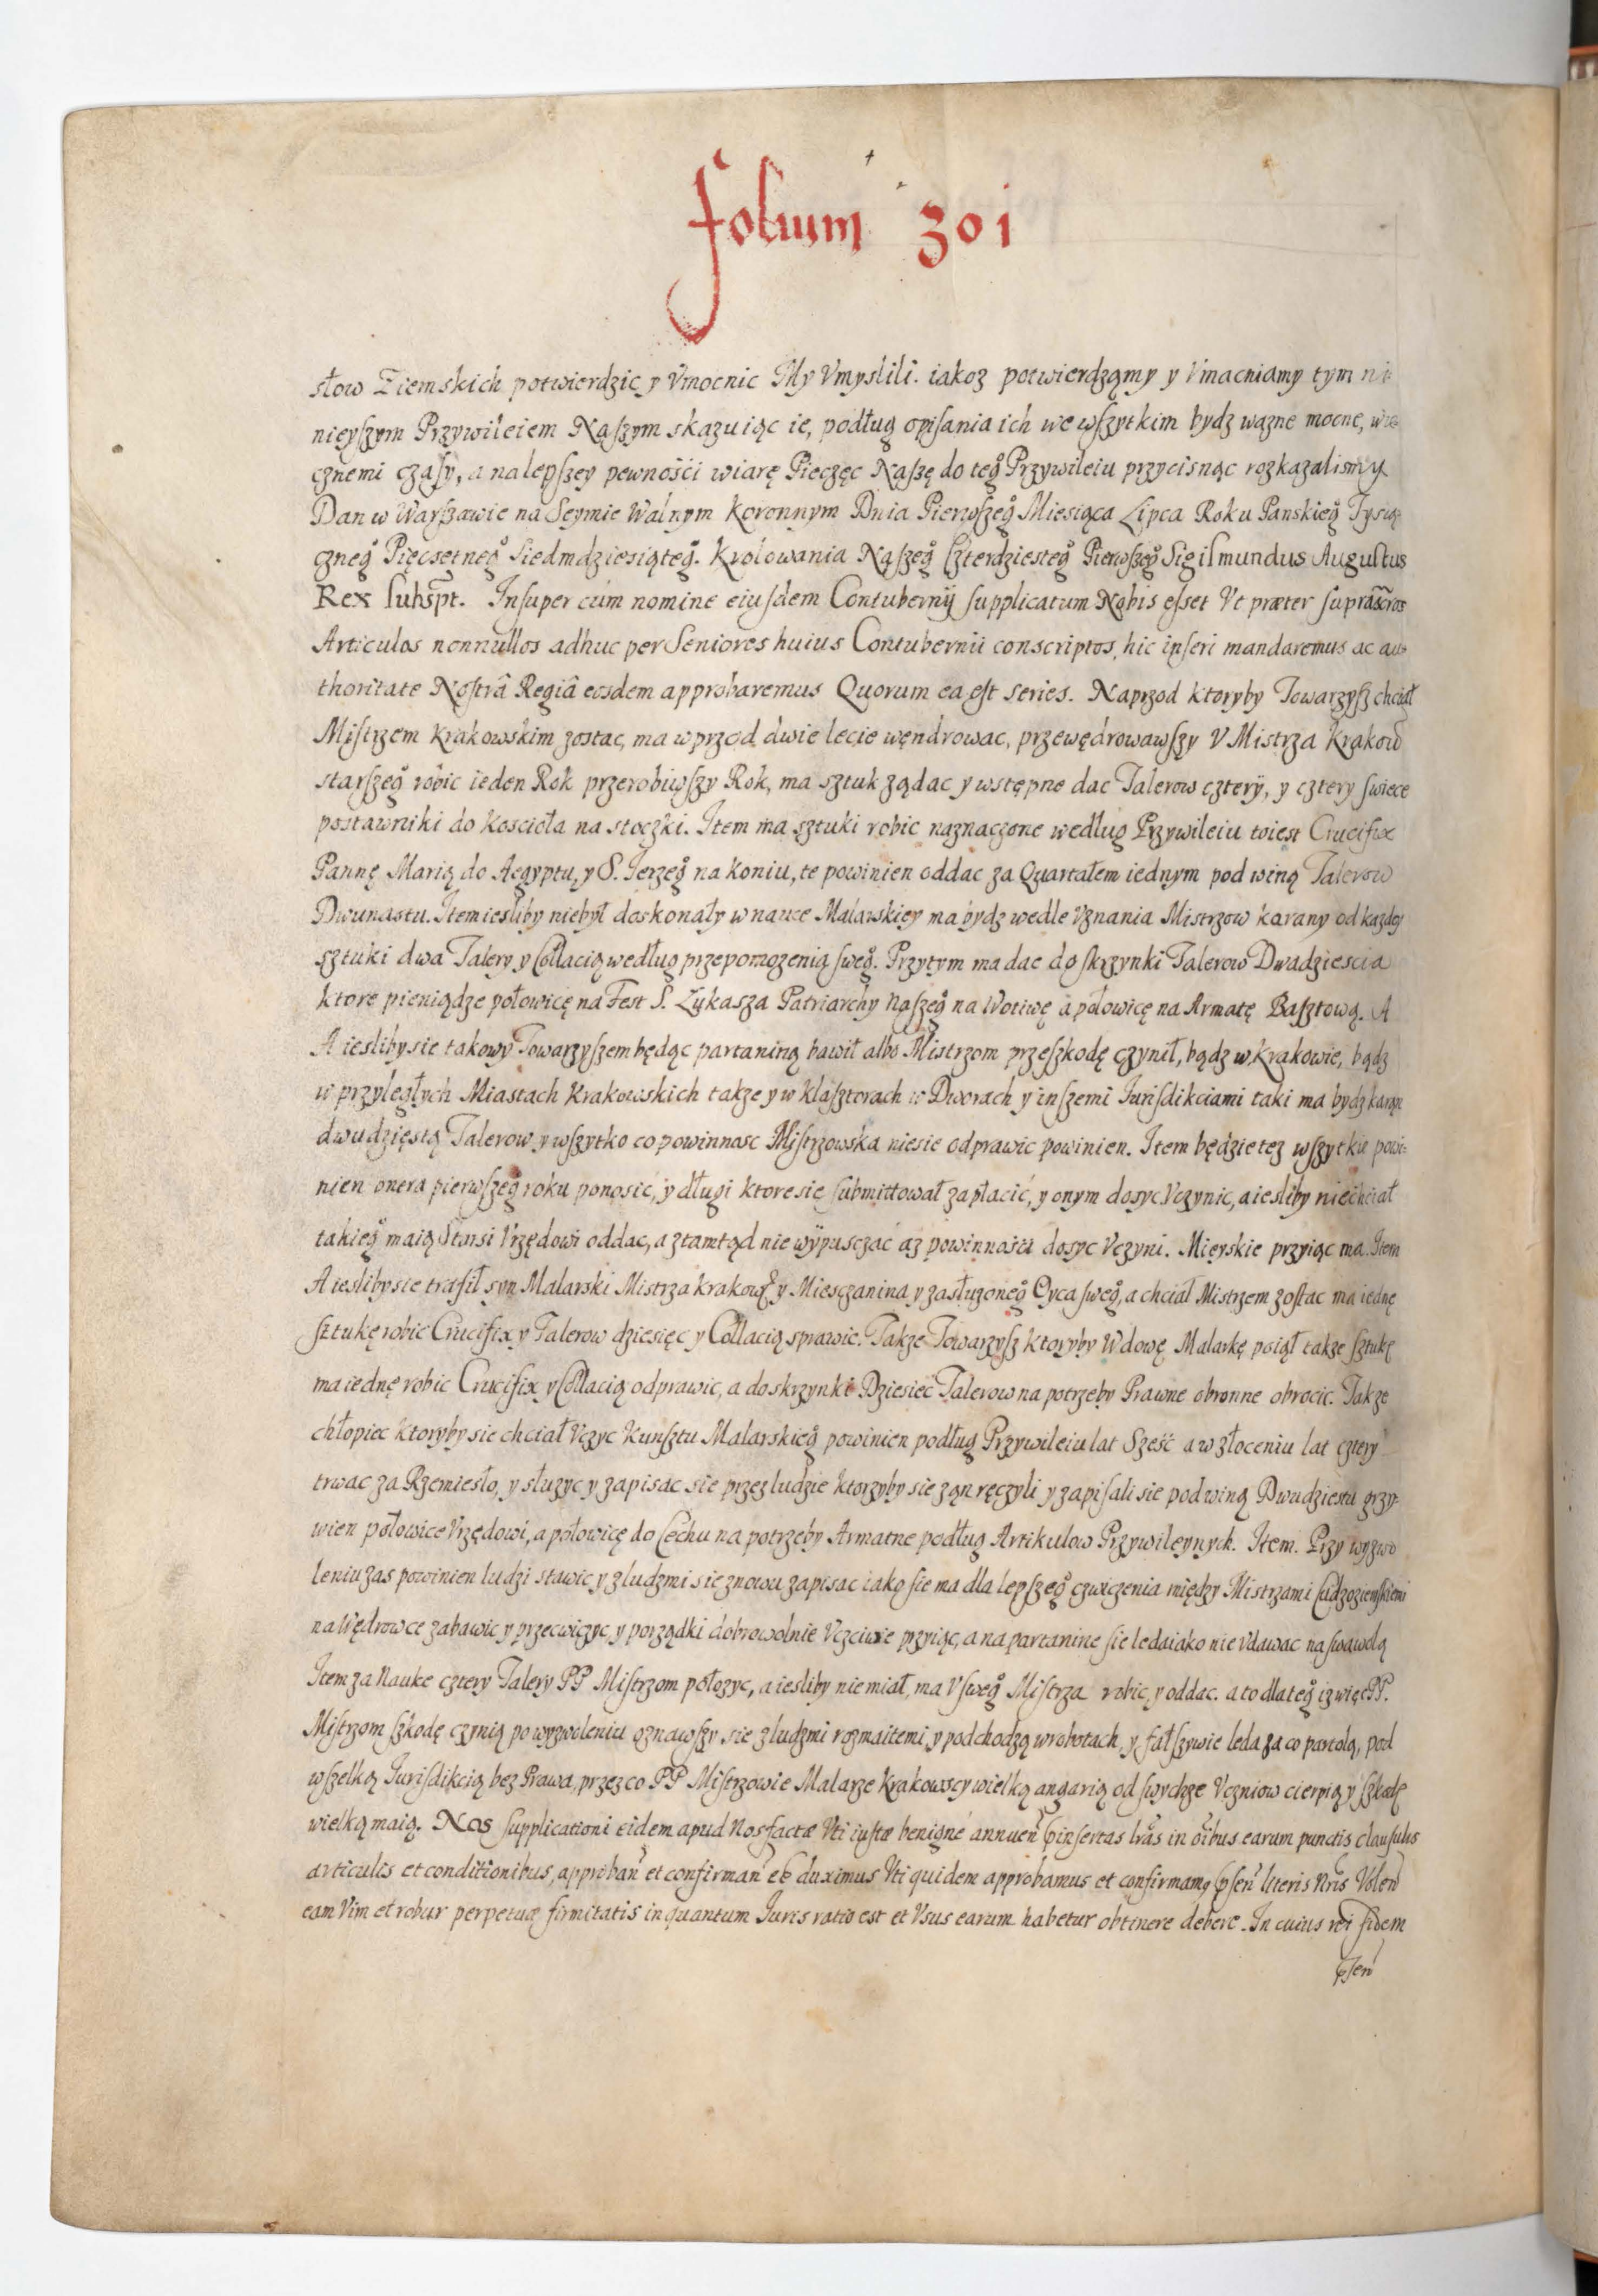 folium 301
słow Ziemskich potwierdzic y Vmocnic My Vmyslili. iakoz potwierdzamy y Vmacniamy tym ni-
nieyſzym Przywileiem Naſzym skazuiąc ie, podług opiſania ich we wſzytkim bydz wazne mocne, wie
cznemi czaſy, a na lepſzey pewnośći wiarę Pieczęc Naſzę do teg° Przywileiu przycisnąc rozkazalismy
Dan w Warſzawie na Seymie Walnym Koronnym Dnia Pierwſzeg° Miesiąca Lipca Roku Panskieg° Tysią
czneg° Pięcsetneg° Siedmdziesiąteg°. Krolowania Naſzeg° Czterdziesteg° Pierwſzeg° Sigiſmundus Auguſtus
Rex ſuhspt. Inſuper cùm nomine eiuſdem Contubernij ſupplicatum Nobis eſset Vt præter ſuprascros
Articulos nonnullos adhuc per Seniores huius Contubernii conscriptos, hic inſeri mandaremus ac au-
thoritate Noſtrâ Regiâ eosdem approbaremus Quorum ea eſt series. Naprzod ktoryby Towarzyſz chciał
Miſtrzem Krakowskim zostac, ma wprzod dwie lecie wędrowac, przewędrowawſzy V Mistrza Krakow
starſzeg° robic ieden Rok przerobiwſzy Rok, ma sztuk ządac y wstępne dac Talerow cztery, y cztery ſwiece
postawniki do Koscioła na stoczki. Item ma sztuki robic naznaczone według Przywileiu toiest Crucifix
Pannę Marią do Aegyptu, y S. Jerzeg° na koniu, te powinien oddac za Quartałem iednym pod winą Talerow
Dwunastu. Item iesliby niebył doskonały w nauce Malarskiey ma bydz wedle Vznania Mistrzow karany od kazdey
sztuki dwa Talery y Collacią według przepomozenia ſweg°. Przytym ma dac do ſkrzynki Talerow Dwadziescia
ktore pieniądze połowicę na Fest S. Łukasza Patriarchy Naſzeg° na Wotiwę a połowicę na Armatę Baſztową. A
A iesliby sie takowy Towarzyſzem będąc partaniną bawił albo Mistrzom przeſzkodę czynił, bądz w Krakowie, bądz
w przyległych Miastach Krakowskich takze y w klaſztorach w Dworach y inſzemi Juriſdikciami taki ma bydz karan
dwudziestą Talerow y wſzytko co powinnosc Miſtrzowska niesie odprawic powinien. Item będzie tez wſzytkie powi-
nien onera pierwſzeg° roku ponosić, y długi ktore sie ſubmittował zapłacić, y onym dosyc Vczynic, a iesliby niechciał
takieg° maią Starsi Vrzędowi oddac, a ztamtąd nie wypusczać az powinnośći dosyc Vczyni. Mieyskie przyiąc ma. Item
A iesliby sie trafił syn Malarski Mistrza krakow y Miesczanina y zasłuzoneg° Oyca ſweg°, a chciał Mistrzem zoſtac ma iednę
ſztukę robic Crucifix y Talerow dziesięc y Collacią sprawic. Takze Towarzyſz ktoryby Wdowę Malarkę poiął takze ſztukę
ma iednę robic Crucifix y Collacią odprawic, a do skrzynki Dziesiec Talerow na potrzeby Prawne obronne obrocic. Takze
chłopiec ktoryby sie chciał Vczyc Kunſztu Malarskieg° powinien podług Przywileiu lat Sześć a w złoceniu lat cztery
trwac za Rzemiesło, y słuzyc y zapisac sie przez ludzie ktorzyby sie zan ręczyli y zapiſali sie pod winą Dwudziestu grzy-
wien połowice Vrzędowi, a połowicę do Cechu na potrzeby Armatne podług Artikulow Przywileynych. Item. Przy wyzwo
leniu zas powinien ludzi stawic y z ludzmi sie znowu zapisac iako sie ma dla lepſzeg° czwiczenia między Mistrzami Cudzoziemſkiemi
na Wędrowce zabawic y przecwiczyc, y porządki dobrowolnie Vczciwie przyiąc, a na partanine ſie ledaiako nie Vdawac na ſwawolą
Item za Nauke cztery Talery PP Miſtrzom połozyc, a iesliby nie miał, ma V ſweg° Miſtrza robic, y oddac. a to dlateg° iz więc PP.
Miſtrzom ſzkodę czynią po wyzwoleniu oznawſzy sie z ludzmi rozmaitemi, y podchodzą w robotach, y fałſzywie leda za co partolą, pod
wſzelką Juriſdikcią bez Prawa, przez co PP Miſtrzowie Malarze Krakowscy wielką angarią od ſwychze Vczniow cierpią y ſzkodę
wielką maią. Nos ſupplicationi eidem apud Nos factæ Vti iustæ benigné annuen pinſertas lras in oibus earum punctis clauſulis
articulis et conditionibus, approban et confirman eé duximus Vti quidem approbamus et confirmamq pſen literis Nris Volen
eam Vim et robur perpetuæ firmitatis in quantum Juris ratio est et Vsus earum habetur obtinere debere. In cuius rei fidem
pſen